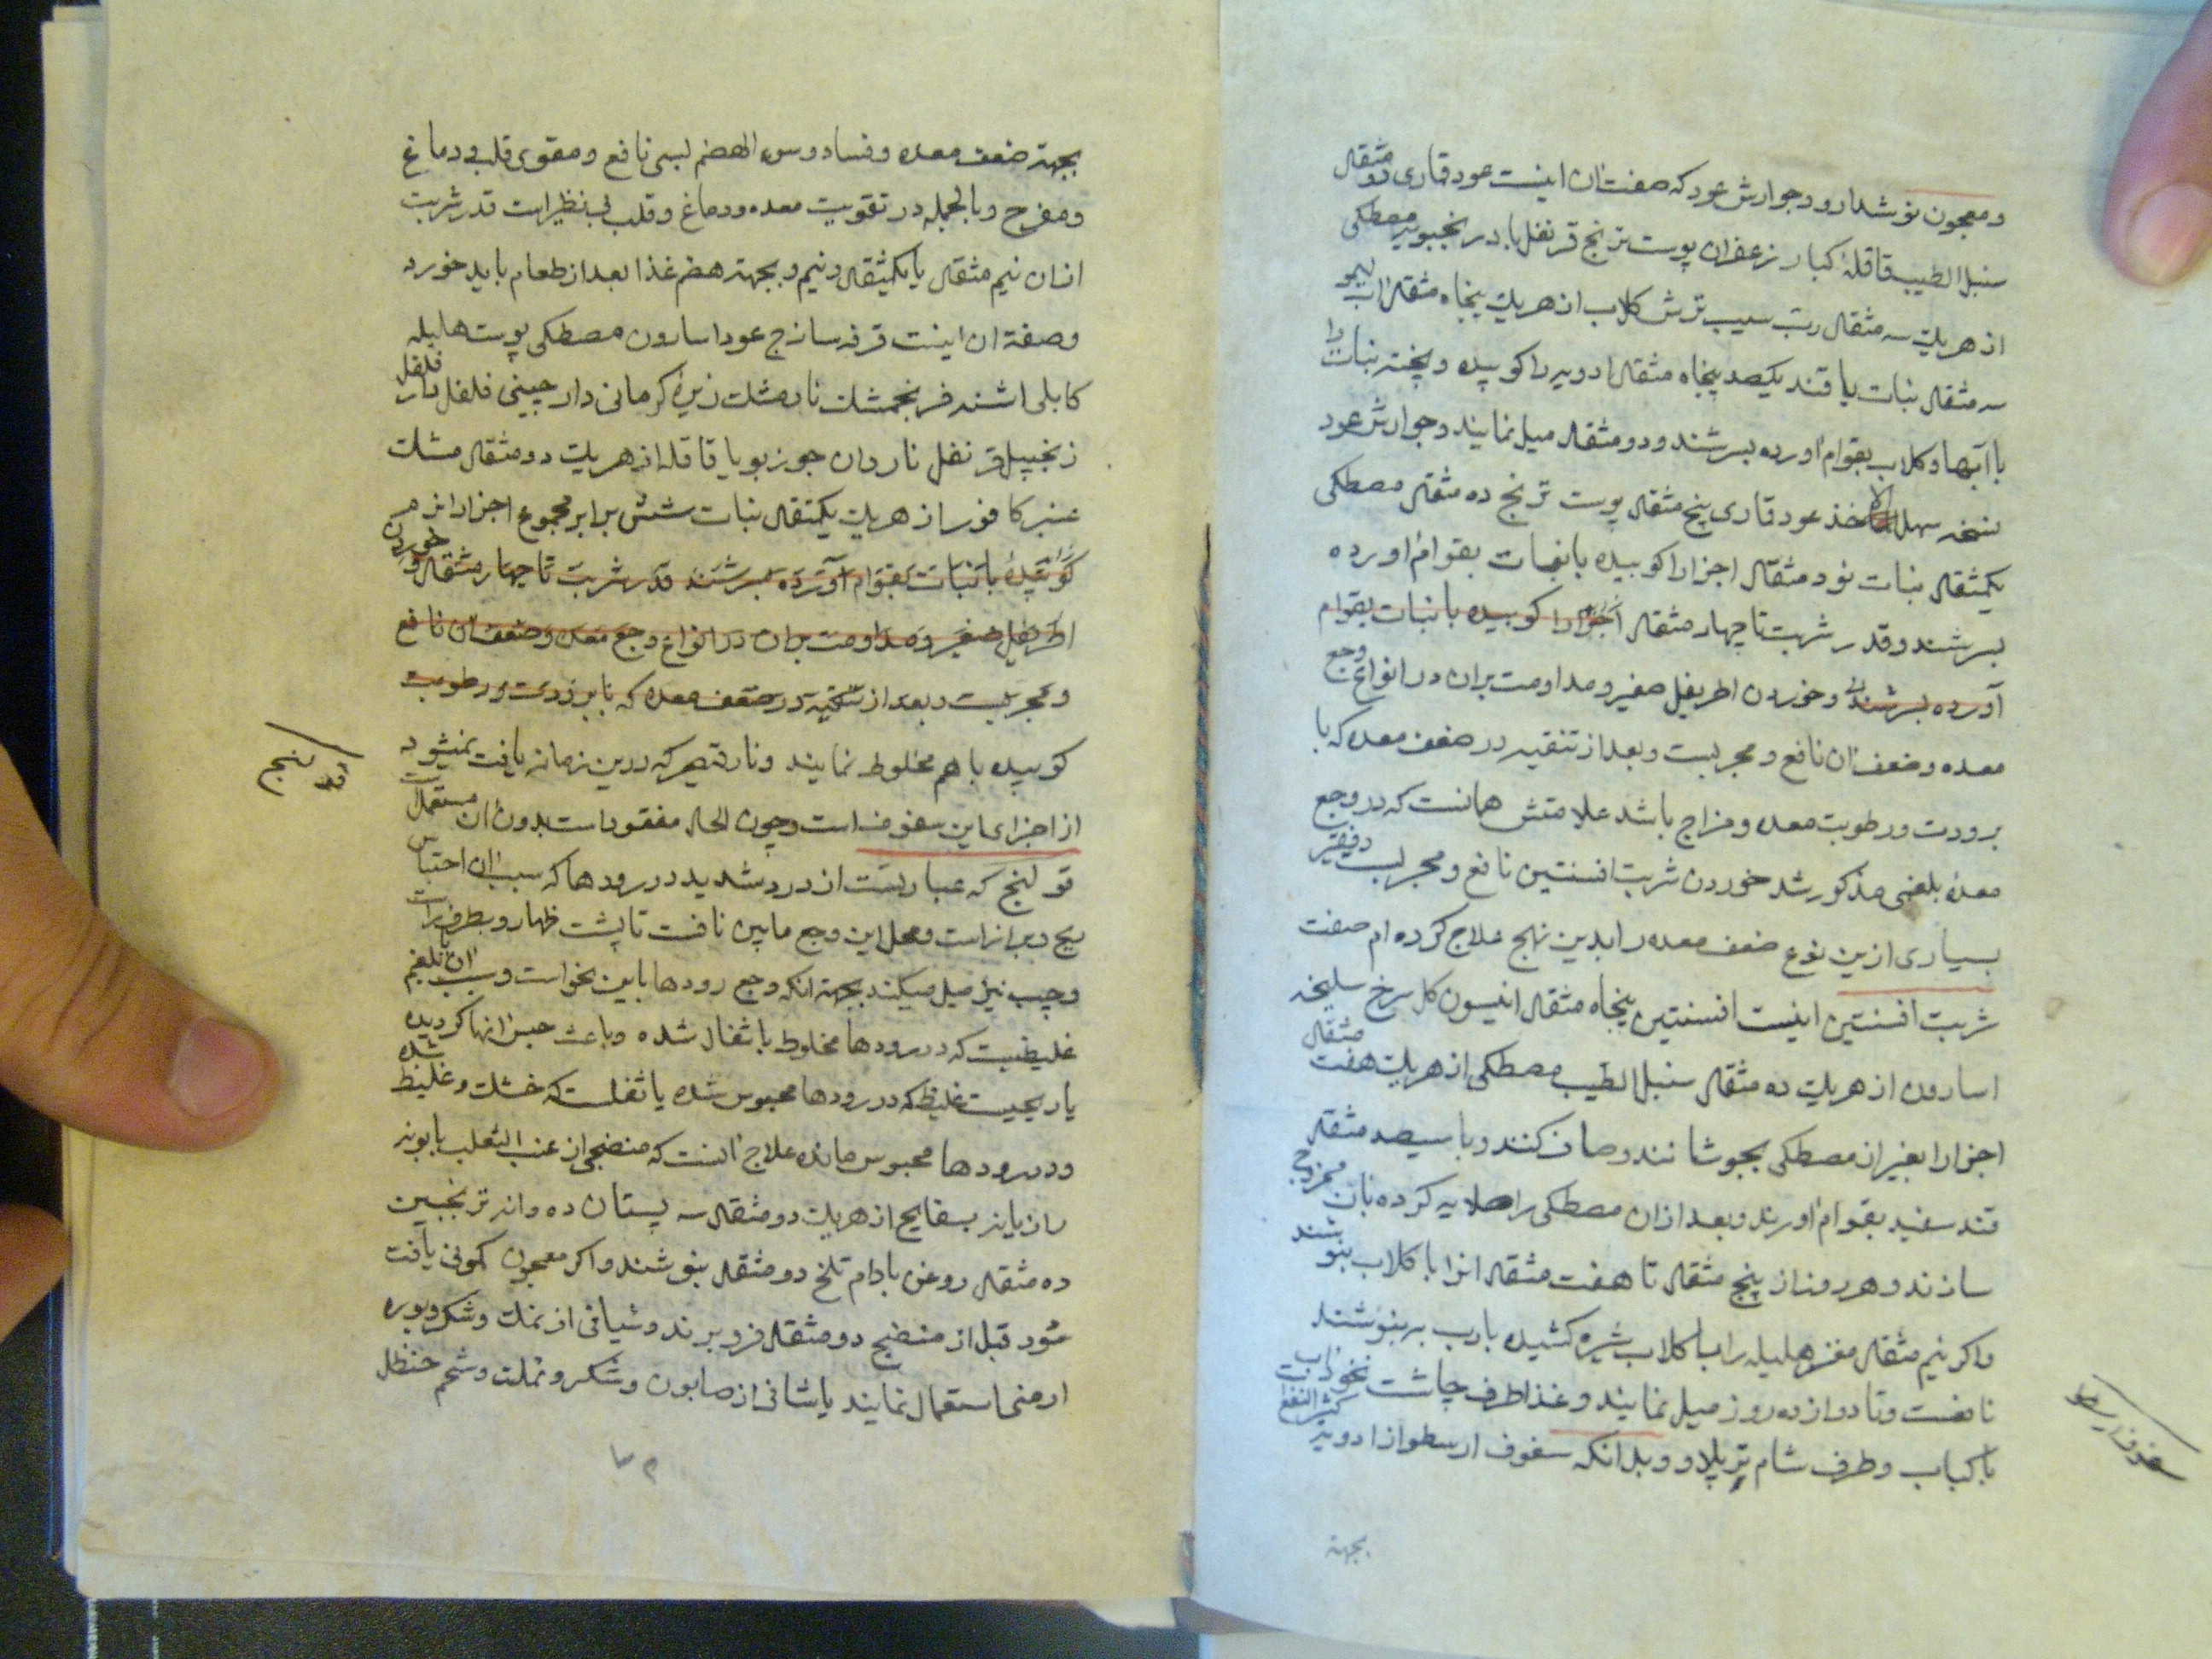 ومعجون نوشدارو وجوارش عود که صفت ان اینست عود قماری دو مثقال
سنبل الطیب قاقلهٔ کبار زعفران پوست ترنج قرنفل بادرنجبویه مصطکی
از هریك سه مثقال ربّ سیب ترش کلاب از هریك پنجاه مثقال اب لیمو
سه مثقال نبات یا قند یکصد پنجاه مثقال ادویه را کوبیده وپخته نبات را
با ابها وکلاب بقوام اورده بسرشند ودو مثقال میل نمایند وجوارش عود
نسخه سهل الاخذ عود قاری پنج مثقال پوست ترنج ده مثقال مصطکی
یکمثقال نبات نود مثقال اجزا را کوبیده با نبات بقوام اورده
بسرشند وقدر شربت تا چهار مثقال اجزا را کوبیده با نبات بقوام
آورده بسرشند وخوردن اطریفل صغیر ومداومت بران در انواع وجع
معده وضعف ان نافع ومجربست وبعد از تنقیه در ضعف معده که با
برودت ورطوبت معده ومزاج باشد علامتش همانست که در وجع
معدهٔ بلغمی مذکور شد خوردن شربت افسنتین نافع ومجربست
بسیاری ازین نوع ضعف معده را بدین نهج علاج کرده ام صفت
شربت افسنتین اینست افسنتین پنجاه مثقال انیسون کل سرخ سلیخه
اسارون از هریك ده مثقال سنبل الطیب مصطکی از هریك هفت مثقال
اجزا را بغیر از مصطکی بجوشانند وصاف کنند وبا سیصد مثقال
قند سفید بقوام اورند وبعد ازان مصطکی را صلایه کرده بان ممزوج
سازند وهر روز از پنج مثقال تا هفت مثقال انرا با کلاب بنوشند
واکر نیم مثقال مغز هلیله را با کلاب شیره کشیده بارب بنوشند
نافعست وتا دوازده روز میل نمایند وغذا طرف چاشت نخوداب
با کباب وطرف شام پلاو وبدانکه سفوف ارسطو از ادویه کثیر النفع
بجهته
بجهته ضعف معده وفساد وسوء الهضم بسی نافع ومقوی قلب ودماغ
ومفرح وبالجمله در تقویت معده ودماغ وقلب بی نظیر است قدر شربت
ازان نیم مثقال یا یکمثقال ونیم وبجهته هضم غذا بعد از طعام باید خورد
وصفة ان اینست قرفه ساذج عود اسارون مصطکی پوست هلیله
کابلی اشنه فرنجمشك نارمشك زیرهٔ کرمانی دارچینی فلفل دار فلفل
زنجبیل قرنفل ناردان جوزبویا قاقله از هریك دو مثقال مشك
عنبر کافور از هریك یکمثقال نبات شش برابر مجموع اجزا را نرم
کوبیده با نبات بقوام آورده بسرشند قدر شربت تا چهار مثقال وخوردن
اطریفل صغیر ومداومت بران در انواع وجع معده وضعف ان نافع
ومجربست وبعد از تنقیه در ضعف معده که با برودت ورطوبت
کوبیده با هم مخلوط نمایند ونارقیصر که درین زمانه یافت نمیشود
از اجزای این سفوف است وچون الحال مفقود است بدون ان مستعملست
قولنج که عبارتست از درد شدید در رودها که سبب ان احتباس
ریح وبراز است ومحل این وجع مابین نافست تا پشت ظهار وبطرف راست
وچپ نیز میل میکند بجهته انکه وجع رودها باین نحو است وسبب ان یا بلغم
غلیظیست که در رودها مخلوط با ثفال شده وباعث حبس انها کردیده
یا ریحیست غلیظ که در رودها محبوس شده یا ثفلست که خشك وغلیظ شده
ودررودها محبوس مانده علاج انست که منضجی از عنب الثعلب بابونه
رازیانه بسفایج از هریك دو مثقال سه پستان ده دانه ترنجبین
ده مثقال روغن بادام تلخ دو مثقال بنوشند واکر معجون کمونی یافت
شود قبل از منضج دو مثقال فرو برند وشیافی از نمك وشکر وبوره
ارمنی استعمال نمایند یا شافی از صابون وشکر ونمك وشحم حنظل